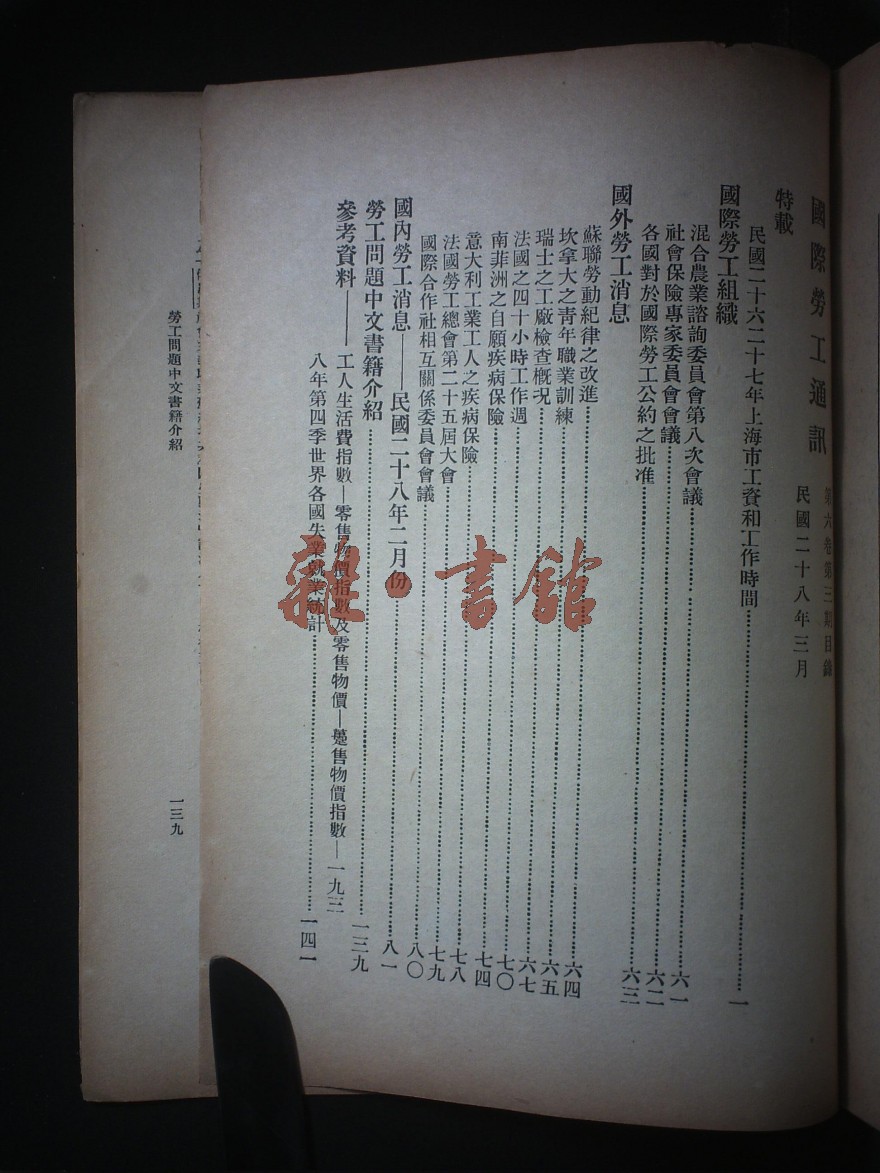 國際勞工通訊
第六卷第三期目錄
民國二十八年三月
特載
民國二十六二十七年上海市工資和工作時間……一
國際勞工組織
混合農業諮詢委員會第八次會議……六一
社會保險專家委員會會議……六二
各國對於國際勞工公約之批准……六三
國外勞工消息
蘇聯勞動紀律之改進……六四
坎拿大之靑年職業訓練……六五
瑞士之工廠檢查槪況……六七
法國之四十小時工作週……七〇
南非洲之自顧疾病保險……七四
意大利工業工人之疾病保險……七八
法國勞工總會第二十五屆大會……七九
國際合作社相互關係委員會會議……八〇
國內勞工消息——民國二十八年二月份……八一
勞工問題中文書籍介紹……一三九
參考資料——工人生活費指數—零售物價指數及零售物價—躉售物價指數—一九三
八年第四季世界各國失業就業統計……一四一
勞工問題中文書籍介紹
一三九
雜·書館